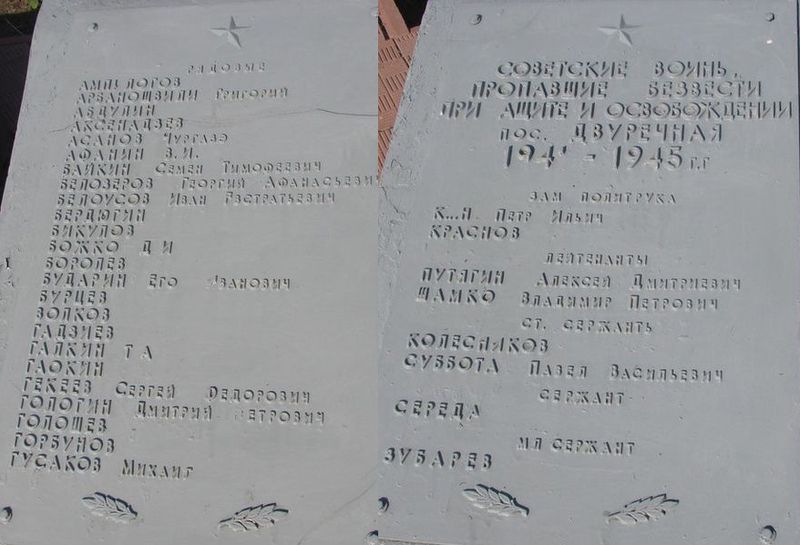 РЯДОВЫЕ
АМПЬЛОГОВ
АРБАНОШВИЛИ ГРИГОРИЙ
АБДУЛИН
АКСЕНАДЗЕВ
АСАНОВ ЧУРГАЗЭ
АФАНИН В.И.
БАЙКИН СЕМЕН ТИМОФЕЕВИЧ
БЕЛОЗЕРОВ ГЕОРГИЙ АФАНАСЬЕВИЧ
БЕЛОУСОВ ИВАН ГВСТРАТЬЕВИЧ
БЕРДЮГИН
ВИКУЛОВ
БОЖКО Д И
БОРОЛЕВ
БУДАРИН ЕГО ИВАНОВИЧ
БУРЦЕВ
ВОЛКОВ
ГАДЗИЕВ
ГАЛКИН Т А
ГАОКИН
ГЕКЕЕВ СЕРГЕЙ ФЕДОРОВИЧ
ГОЛОГИН ДМИТРИЙ ПЕТРОВИЧ
ГОЛОШЕВ
ГОРБУНОВ
ГУСАКОВ МИХАИЛ
СОВЕТСКИЕ ВОИНЫ,
ПРОПАВШИЕ БЕЗВЕСТИ
ПРИ АЩИТЕ И ОСВОБОЖДЕНИИ
ПОС. ДВУРЕЧНАЯ
1941 - 1945 Г.Г
ЗАМ ПОЛИТРУКА
К...Н. ПЕТР ИЛЬИЧ
КРАСНОВ
ЛЕЙТЕНАНТЫ
ПУТЯГИН АЛЕКСЕЙ ДМИТРИЕВИЧ
ШАМКО ВЛАДИМИР ПЕТРОВИЧ
СТ. СЕРЖАНТЫ
КОЛЕСНИКОВ
СУББОТА ПАВЕЛ ВАСИЛЬЕВИЧ
СЕРЖАНТ
СЕРЕДА
МЛ СЕРЖАНТ
ЗУБАРЕВ